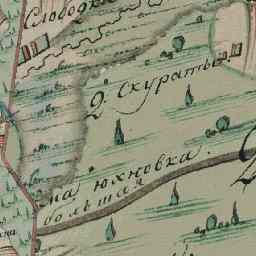 Слободка
Д. Скураты
на юхновка.
большая